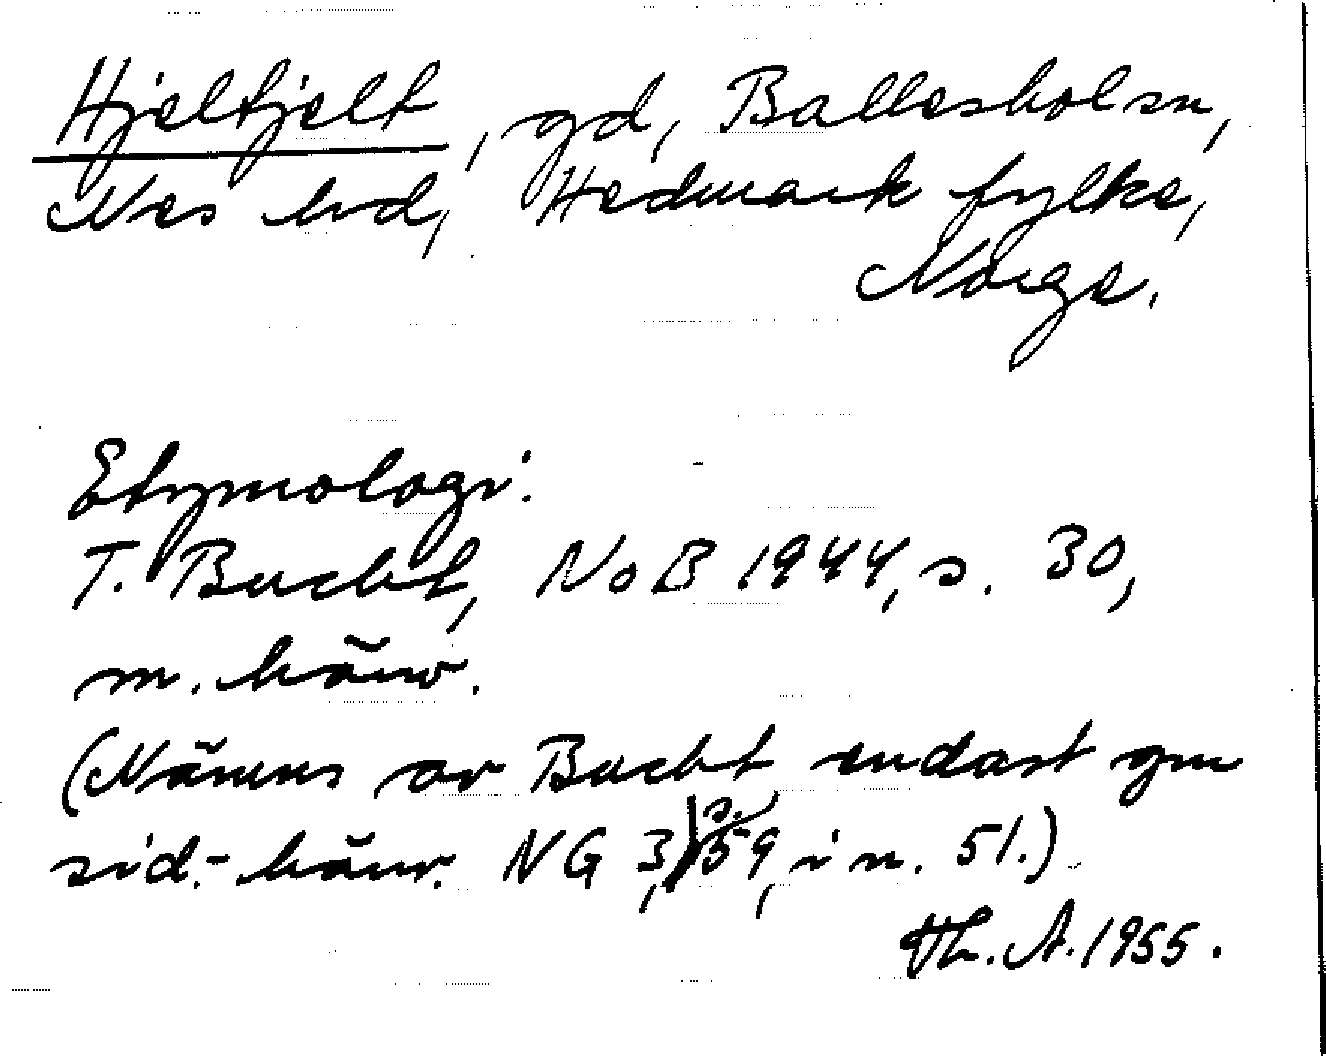 Hjeltjelt, gd, Ballesholm,
Nes hd, Hedmark fylke,
Norge.
Etymologi:
T. Bucht, NoB 1944, s. 30,
m. hänv.
(Nämns av Bucht endast gm
sid.-hänv. NG 3, s. 59, i n. 51.)
Th. A. 1955.